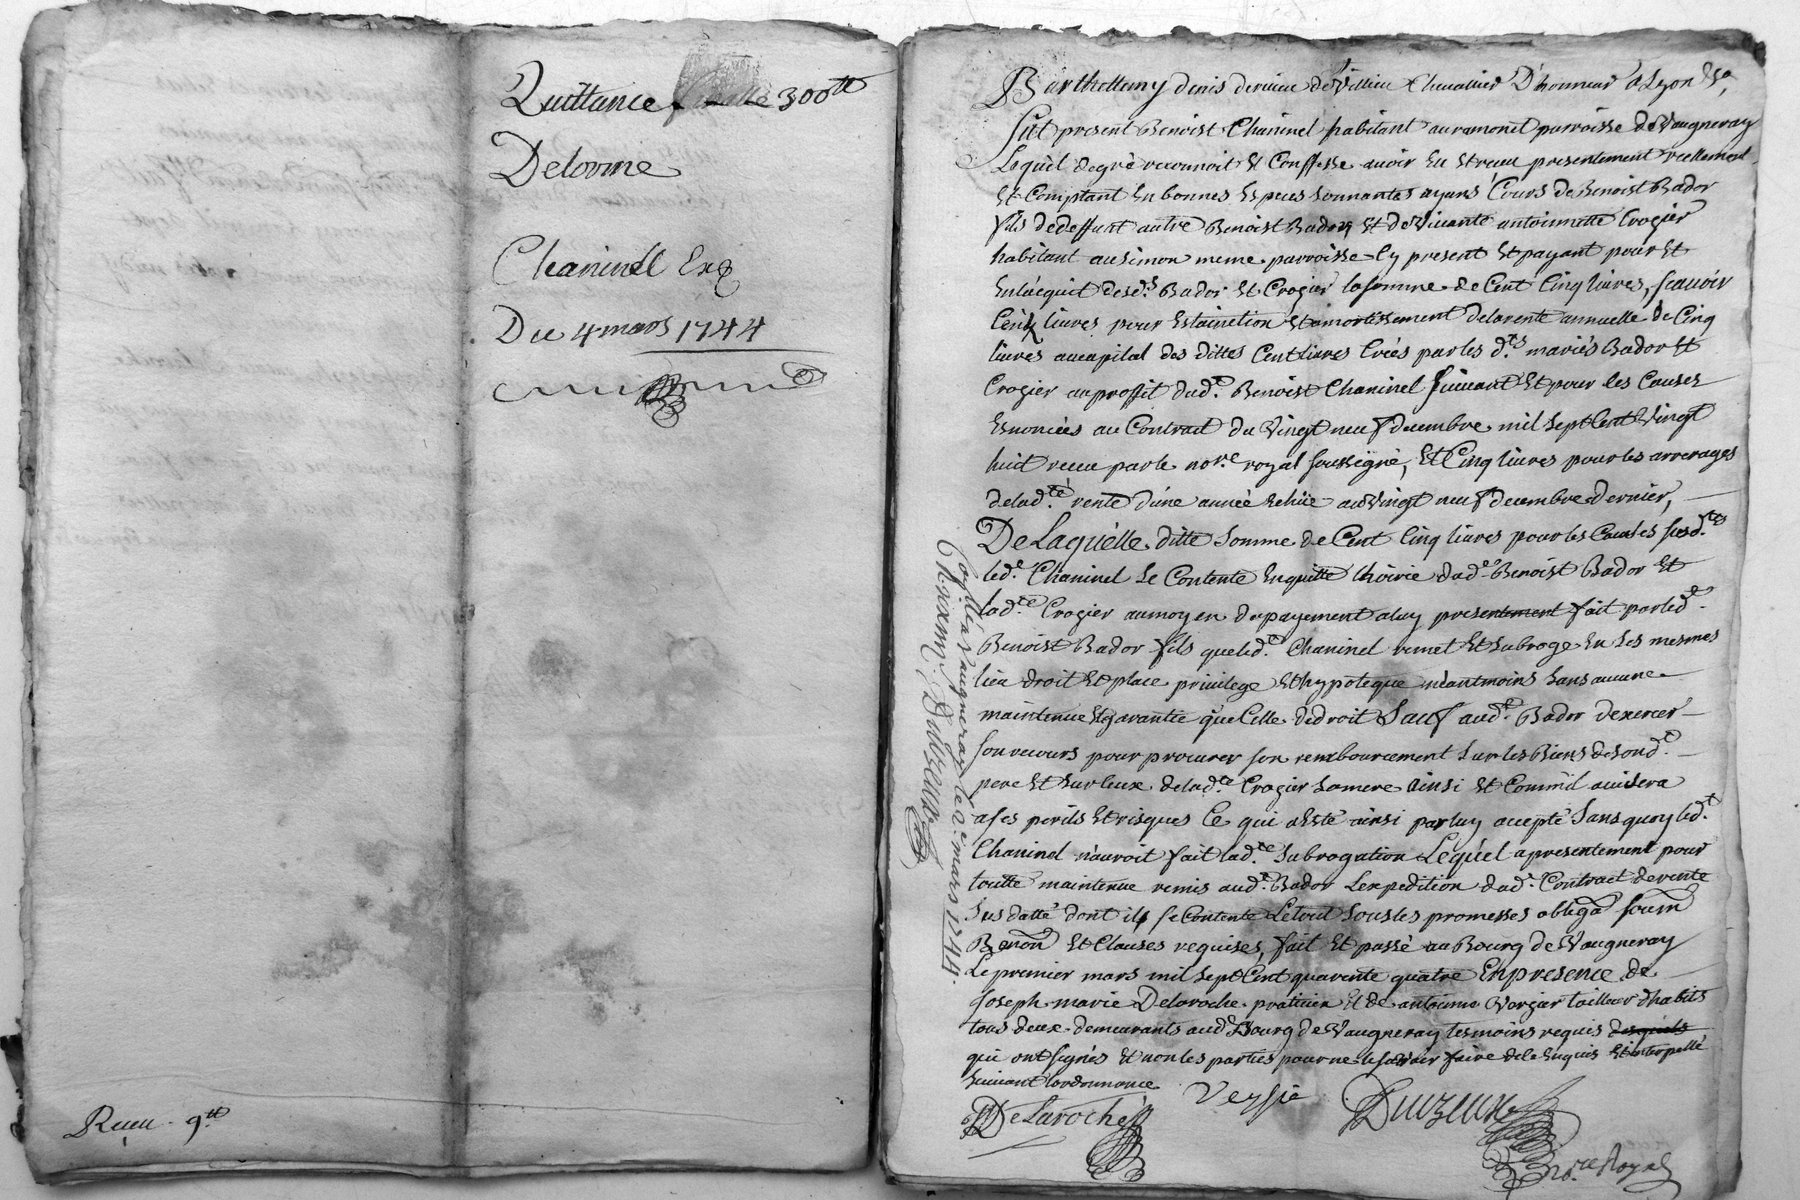 Quittance 300tt
Delorme
Chaninel Exp
Du 4 mars 1744
Receu 9.tt
Barthellemy denis derieu deVillieu Chevallier D'honneur a Lyon &a,
fut present Benoist Chaninel habitant au ramond parroisse deVaugneray
Lequel de gré reconnoit Et Conffesse avoir Eu Et receu presentement reellement
Et Comptant En bonnes Especes sonnantes ayans Cours de Benoist Bador
fils de deffunt autre Benoist Bador Et deVivante antoinnette Crozier
habitant au simon meme parroisse Cy present Et payant pour Et
En lacquit desd.s Bador Et Crozier la somme de Cent Cinq livres, scavoir
Cent livres pour Extainction Et amortissement de la rente annuelle de Cinq
livres au capital des dittes Cent livres Créés par les d.ts mariés Bador Et
Crozier au proffit dud.t Benoist Chaninel suivant Et pour les Causes
Enoncées au Contract du Vingt neuf decembre mil sept Cent Vingt
huit receu par le no.re royal soussigné, Et Cinq livres pour les arrerages
de lad.te rente d'une année Echüe au Vingt neuf decembre dernier,
De Laquelle ditte somme de Cent Cinq livres pour les Causes susd.tes
led.t Chaninel se Contente En quitte l'hoirie dud.t Benoist Bador Et
lad.te Crozier au moyen du payement a luy presentement fait par led.t
Benoist Bador fils que led.t Chaninel remet Et subroge En ses mesmes
lieu droit Et place privilege Et hypoteque néantmoins sans aucune
maintenue Et garantie que Celle de droit Sauf aud.t Bador dexercer
son recours pour procurer son remboursement sur les Biens de sond.t
pere Et sur Ceux de lad.te Crozier sa mere ainsi Et Comm'il avisera
a ses perils Et risques Ce qui a Esté ainsi par luy accepté Sans quoy led.t
Chaninel n'auroit fait lad.te subrogation Lequel a presentement pour
toutte maintenue remis aud.t Bador l'expedition dud.t Contract de rente
sus datté dont il se Contente Le tout sous les promesses obliga.on soum.on
Renon Et Clauses requises, fait Et passé au Bourg deVaugneray
Le premier mars mil sept Cent quarente quatre En presence de
Joseph marie Delaroche praticien Et de antoine Verzier tailleur d'habits
tous deux demeurants aud.t Bourg deVaugneray tesmoins requis desquels
qui ont signés Et non les parties pour ne le sçavoir faire de ce Enquis Et interpellé
suivant l'ordonnance
DeLaroche
Versie
no.re Royal
Con.llé a Vaugneray le 2.e mars 1744.